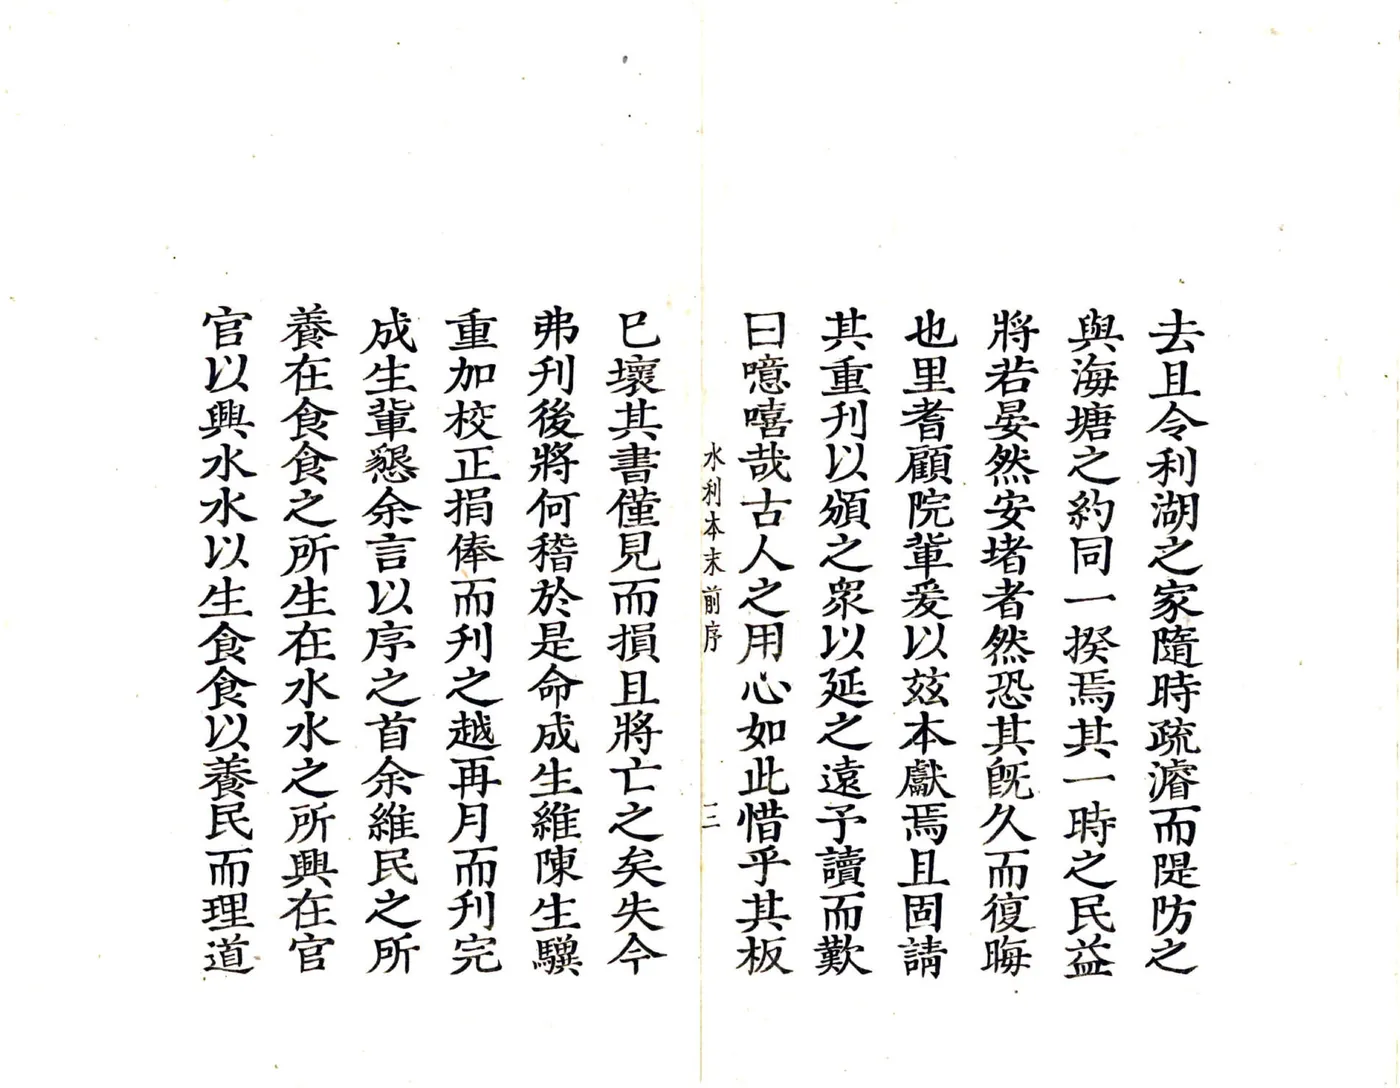 去且令利湖之家隨時疏濬而隄防之
與海塘之約同一揆焉其一時之民益
將若晏然安堵者然恐其旣久而復晦
也里耆顧院軰爰以玆本獻焉且固請
其重刊以頒之衆以延之遠予讀而歎
曰噫嘻哉古人之用心如此惜乎其板
水利本末前序
三
已壞其書僅見而損且將亡之矣失今
弗刋後將何稽於是命成生維陳生驥
重加校正捐俸而刋之越再月而刋完
成生軰懇余言以序之首余維民之所
養在食食之所生在水水之所興在官
官以興水水以生食食以養民而理道